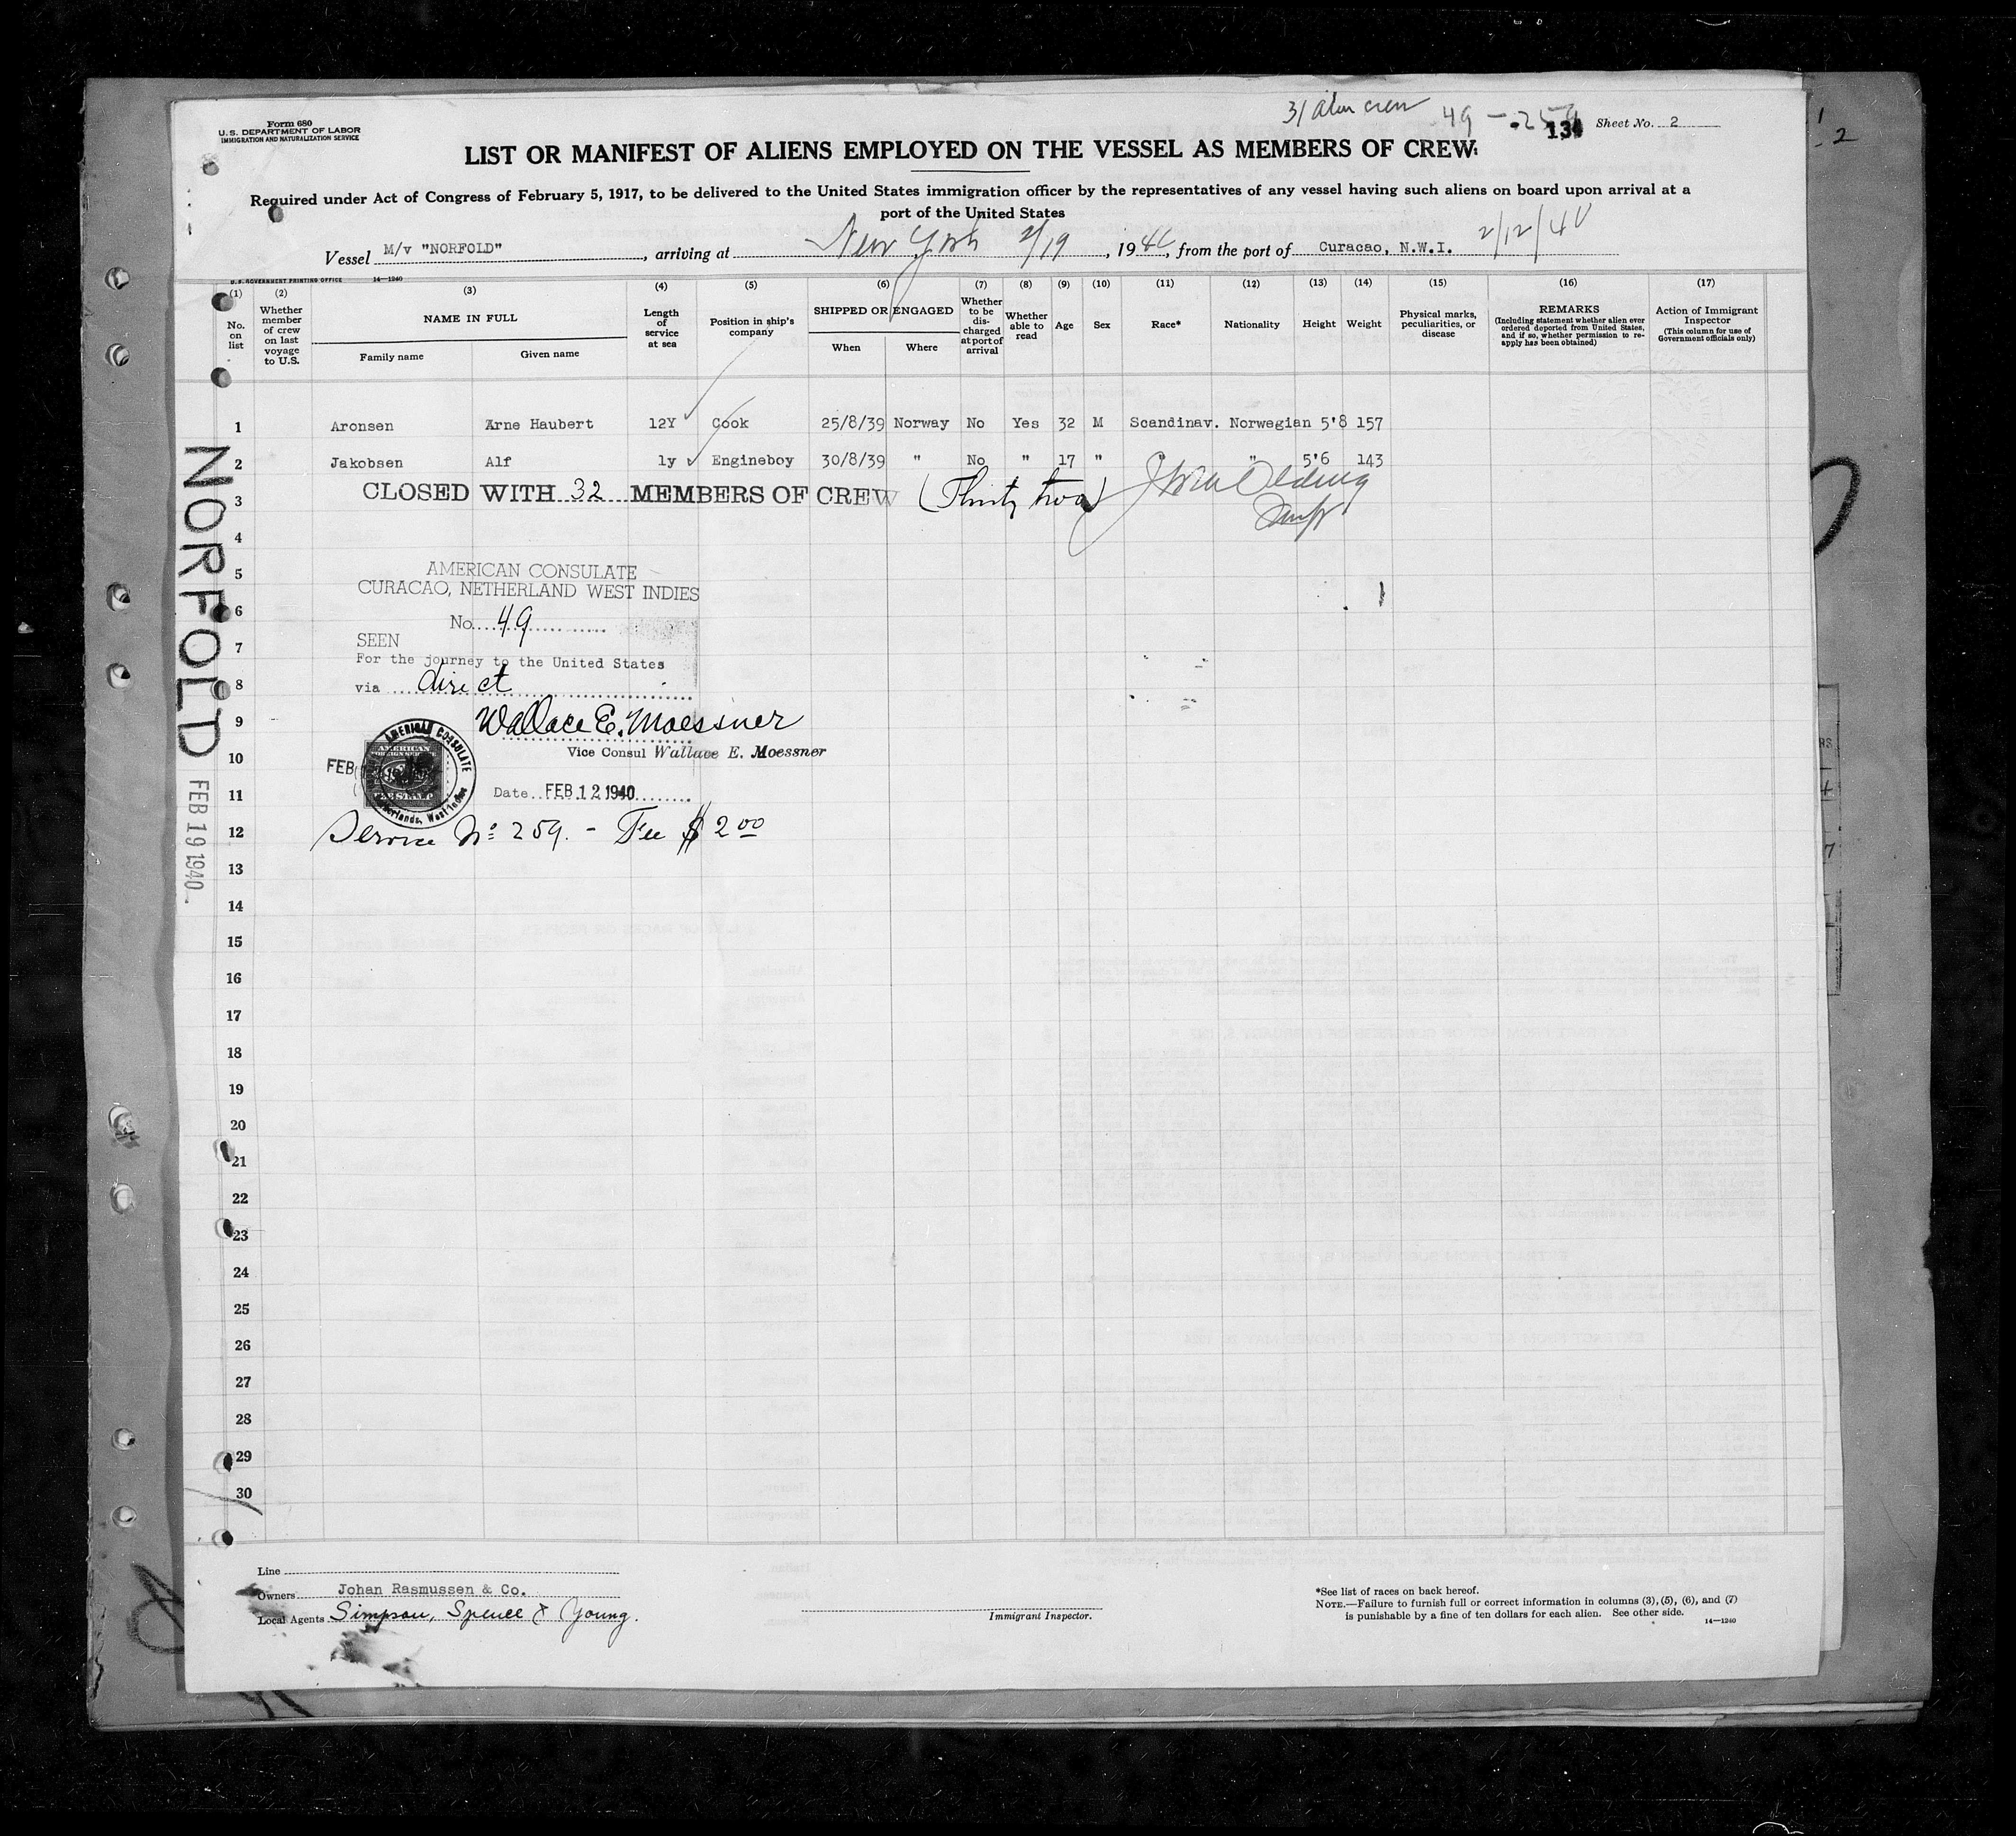 Form 680
U.S. DEPARTMENT OF LABOR
IMMIGRATION AND NATURALIZATION SERVICE
31 alien crew 49 - 259
Sheet No. 2
LIST OR MANIFEST OF ALIENS EMPLOYED ON THE VESSEL AS MEMBERS OF CREW
Required under Act of Congress of February 5, 1917, to be delivered to the United States immigration officer by the representatives of any vessel having such aliens on board upon arrival at a
port of the United States
Vessel M/v "NORFOLD", arriving at New York 2/19, 1940, from the port of Curacao, N.W.I. 2/12/40
U.S. GOVERNMENT PRINTING OFFICE 14—1240
(1) (2) (3) (4) (5) (6) (7) (8) (9) (10) (11) (12) (13) (14) (15) (16) (17)
No. on list
Whether member of crew on last voyage to U.S.
NAME IN FULL
Family name
Given name
Length of service at sea
Position in ship's company
SHIPPED OR ENGAGED
When
Where
Whether to be discharged at port of arrival
Whether able to read
Age
Sex
Race*
Nationality
Height
Weight
Physical marks, peculiarities, or disease
REMARKS
(Including statement whether alien ever ordered deported from United States, and if so, whether permission to reapply has been obtained)
Action of Immigrant Inspector
(This column for use of Government officials only)
1 Aronsen Arne Haubert 12Y Cook 25/8/39 Norway No Yes 32 M Scandinav. Norwegian 5'8 157
2 Jakobsen Alf 1y Engineboy 30/8/39 " No " 17 " " " 5'6 143
3 CLOSED WITH 32 MEMBERS OF CREW (Thirty two)
4
5 AMERICAN CONSULATE
CURACAO, NETHERLAND WEST INDIES
6 No. 49
7 SEEN
For the journey to the United States
8 via direct
9 Wallace E. Moessner
10 Vice Consul Wallace E. Moessner
AMERICAN CONSULATE
AMERICAN
FOREIGN SERVICE
FEB
11 Date FEB 12 1940
12 Service No: 259. - Fee $ 2 00
13
14
15
16
17
18
19
20
21
22
23
24
25
26
27
28
29
30
NORFOLD
FEB 19 1940
Line
Owners Johan Rasmussen & Co.
Local Agents Simpson, Spence & Young.
Immigrant Inspector.
*See list of races on back hereof.
NOTE.—Failure to furnish full or correct information in columns (3), (5), (6), and (7)
is punishable by a fine of ten dollars for each alien. See other side.
14—1240